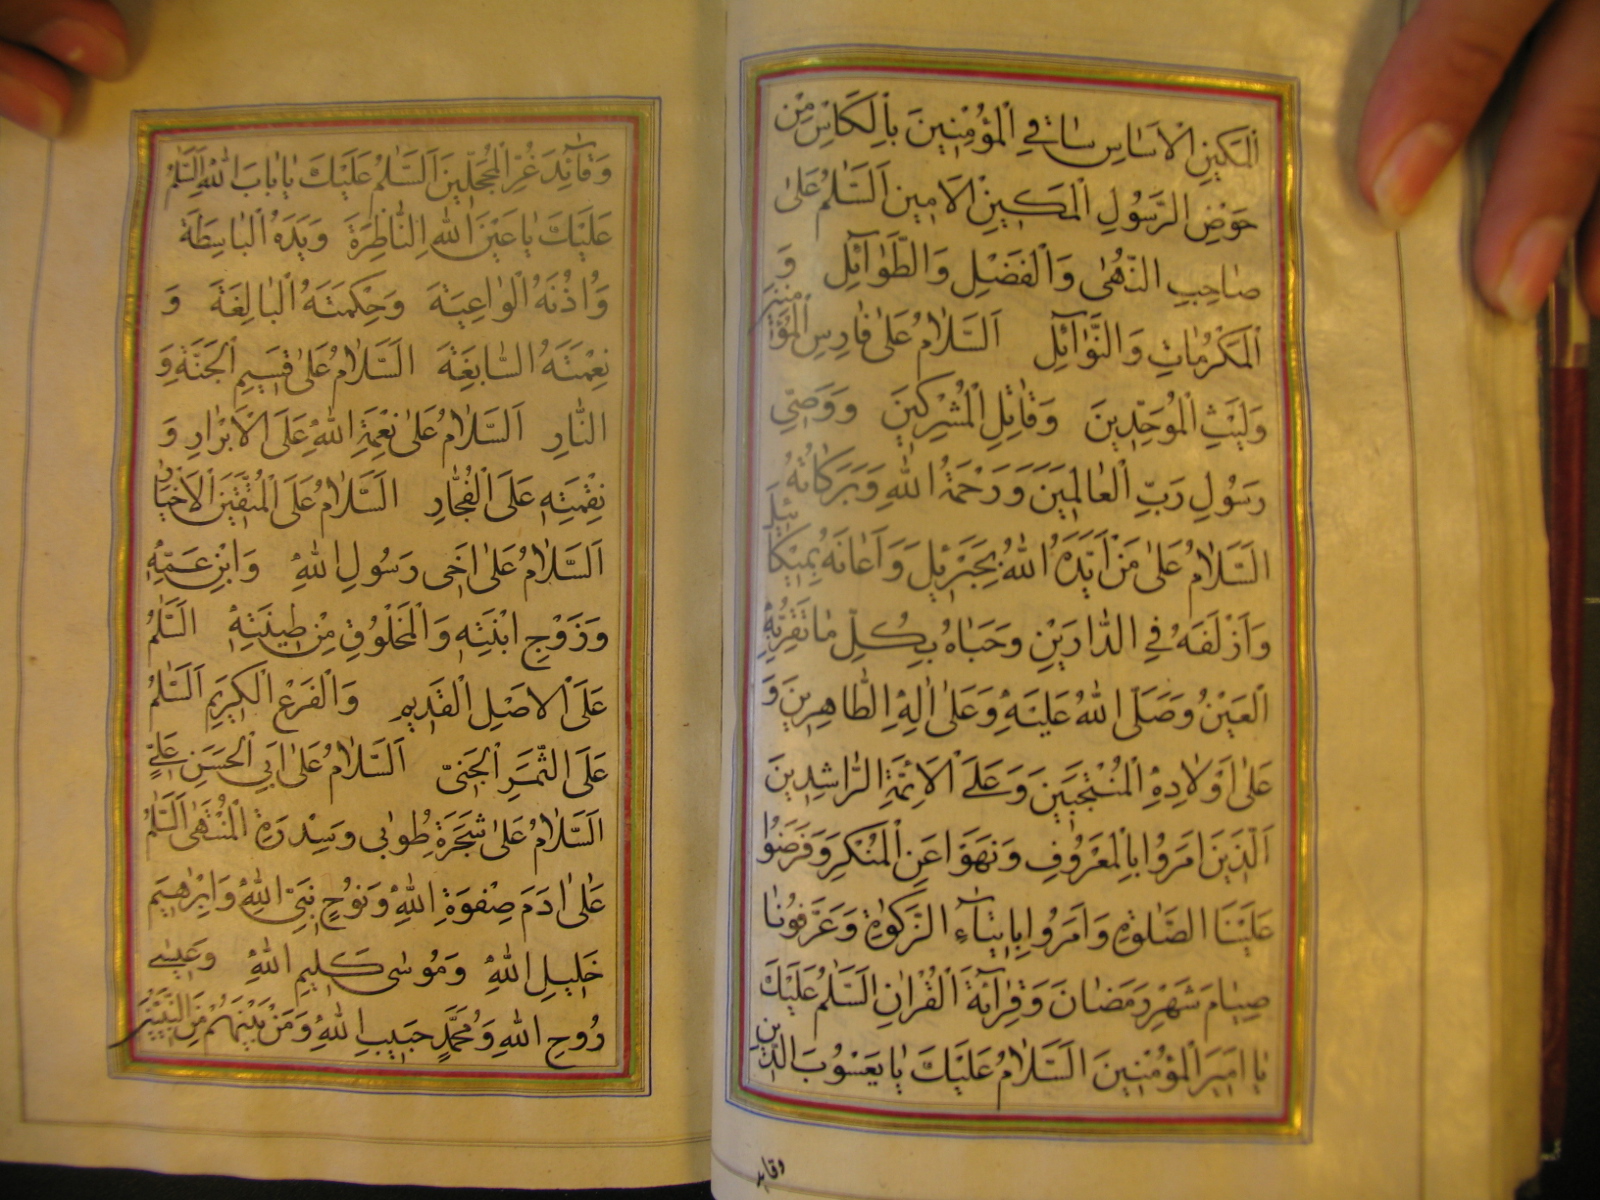 الْمَكينِ الْاَساسِ ساقي الْمُؤْمِنينَ بِالْكَاْسِ مِنْ
حَوْضِ الرَّسُولِ الْمَكينِ الْاَمينِ اَلسَّلٰمُ عَلىٰ
صاحِبِ النُّهىٰ وَالْفَضْلِ وَالطَّوٰٓائِلِ وَ
الْمَكْرُماتِ وَالنَّوٰٓائِلِ اَلسَّلٰامُ عَلىٰ فارِسِ الْمُؤْمِنينَ
وَلَيْثِ الْمُوَحِّدينَ وَقاتِلِ الْمُشْرِكينَ وَوَصِيِّ
رَسُولِ رَبِّ الْعالَمينَ وَرَحْمَةُ اللهِ وَبَرَكاتُهُ
اَلسَّلٰامُ عَلىٰ مَنْ اَيَّدَهُ اللهُ بِجَبْرَئيلَ وَاَعانَهُ بِميكائيلَ
وَاَزْلَفَهُ فِي الدّارَيْنِ وَحَباهُ بِكُلِّ ما تَقَرُّ بِهِ
الْعَيْنُ وَصَلَّى اللهُ عَلَيْهِ وَعَلىٰ اٰلِهِ الطّاهِرينَ وَ
عَلىٰ اَوْلادِهِ الْمُنْتَجَبينَ وَعَلَى الْاَئِمَّةِ الرّاشِدينَ
اَلَّذينَ اَمَرُوا بِالْمَعْرُوفِ وَنَهَوْا عَنِ الْمُنْكَرِ وَفَرَضُوا
عَلَيْنَا الصَّلٰوةَ وَاَمَرُوا بِايتٰآءِ الزَّكٰوةِ وَعَرَّفُونا
صِيامَ شَهْرِ رَمَضانَ وَقِرٰآئَةَ الْقُرْانِ اَلسَّلٰمُ عَلَيْكَ
يا اَميرَ الْمُؤْمِنينَ اَلسَّلٰامُ عَلَيْكَ يا يَعْسُوبَ الدّينِ
وقايد
وَقٰآئِدَ غُرِّ الْمُحَجَّلينَ اَلسَّلٰمُ عَلَيْكَ يا بابَ اللهِ اَلسَّلٰمُ
عَلَيْكَ يا عَيْنَ اللهِ النّاظِرَةَ وَيَدَهُ الْباسِطَةَ
وَاُذُنَهُ الْواعِيَةَ وَحِكْمَتَهُ الْبالِغَةَ وَ
نِعْمَتَهُ السّابِغَةَ اَلسَّلٰامُ عَلىٰ قَسيمِ الْجَنَّةِ وَ
النّارِ اَلسَّلٰامُ عَلىٰ نِعْمَةِ اللهِ عَلَى الْاَبْرارِ وَ
نِقْمَتِهِ عَلَى الْفُجّارِ اَلسَّلٰامُ عَلَى الْمُتَّقينَ الْاَخْيارِ
اَلسَّلٰامُ عَلىٰ اَخى رَسُولِ اللهِ وَابْنِ عَمِّهِ
وَزَوْجِ ابْنَتِهِ وَالْمَخْلُوقِ مِنْ طينَتِهِ اَلسَّلٰمُ
عَلَى الْاَصْلِ الْقَديمِ وَالْفَرْعِ الْكَريمِ اَلسَّلٰمُ
عَلَى الثَّمَرِ الْجَنِيِّ اَلسَّلٰامُ عَلىٰ اَبِي الْحَسَنِ عَلِيٍّ
اَلسَّلٰامُ عَلىٰ شَجَرَةِ طُوبى وَسِدْرَةِ الْمُنْتَهىٰ اَلسَّلٰمُ
عَلىٰ ادَمَ صِفْوَةِ اللهِ وَنُوحٍ نَبِيِّ اللهِ وَاِبْرٰهيمَ
خَليلِ اللهِ وَمُوسى كَليمِ اللهِ وَعيسى
رُوحِ اللهِ وَمُحَمَّدٍ حَبيبِ اللهِ وَمَنْ بَيْنَهُمْ مِنَ النَّبِيّينَ